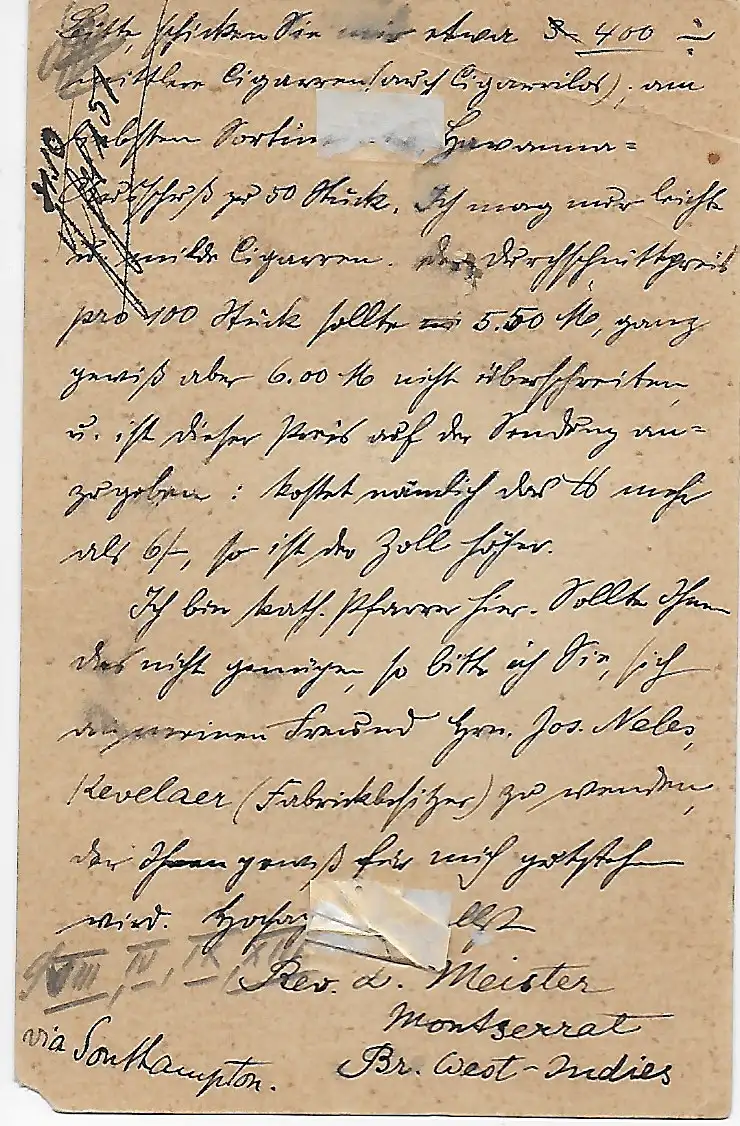 Bitte, schicken Sie mir etwa 400
mittlere Cigarren (auch Cigarrilos), am
liebsten Havanna=
Ausschuß zu 50 Stück. Ich mag nur leichte
u. milde Cigarren. Der Durchschnittpreis
pro 100 Stück sollte 5.50 M, ganz
gewiß aber 6.00 M nicht überschreiten,
u. ist dieser Preis auf der Sendung an=
zugeben: kostet nämlich das mehr
als 6/-, so ist der Zoll höher.
Ich bin kath. Pfarrer hier. Sollte Ihnen
das nicht genügen, so bitte ich Sie, sich
an meinen Freund Hrn. Jos. Neles,
Kevelaer (Fabrickbesitzer) zu wenden,
der Ihnen gewiß für mich gutstehen
wird.
VIII, IV, IX, XII
Rev. L. Meister
Montserrat
Br. West-Indies
via Southampton.